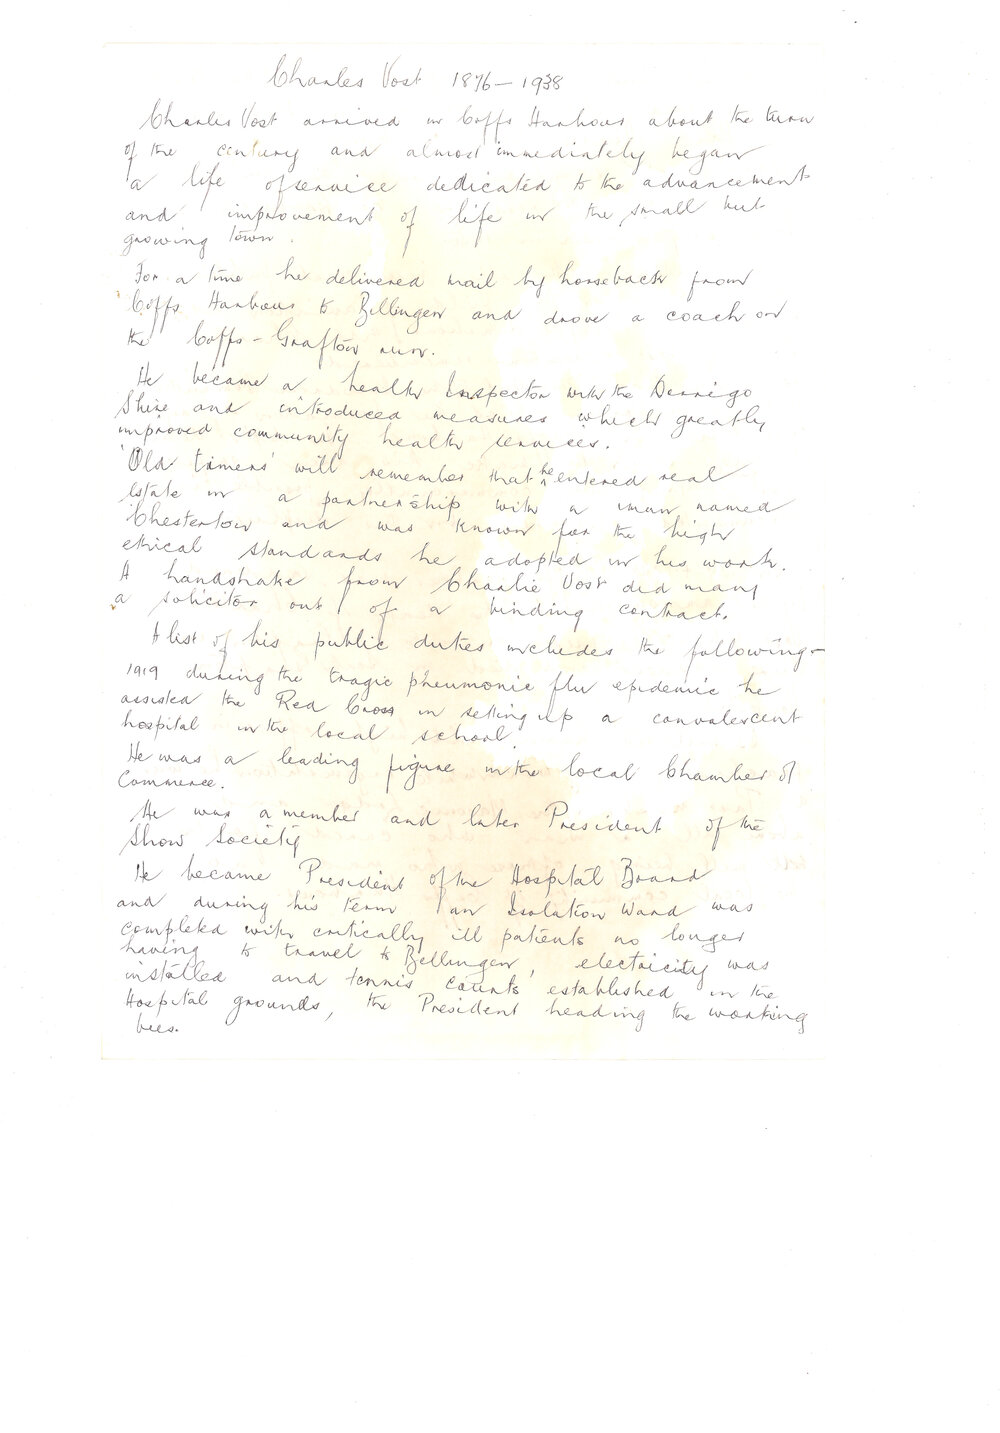 Charles Vost 1876 - 1938
Charles Vost arrived in Coffs Harbour about the turn
of the century and almost immediately began
a life of service dedicated to the advancement
and improvement of life in the small but
growing town.
For a time he delivered mail by horseback from
Coffs Harbour to Bellingen and drove a coach on
the Coffs - Grafton run.
He became a health Inspector with the Dorrigo
Shire and introduced measures which greatly
improved community health services.
'Old timers' will remember that he entered real
estate in a partnership with a man named
Chesterton and was known for the high
ethical standards he adopted in his work.
A handshake from Charlie Vost did many
a solicitor out of a binding contract.
A list of his public duties includes the following -
1919 during the tragic pneumonic flu epidemic he
assisted the Red Cross in setting up a convalescent
hospital in the local school.
He was a leading figure in the local Chamber of
Commerce.
He was a member and later President of the
Show Society
He became President of the Hospital Board
and during his term an Isolation Ward was
completed with critically ill patients no longer
having to travel to Bellingen, electricity was
installed and tennis courts established in the
Hospital grounds, the President heading the working
bees.